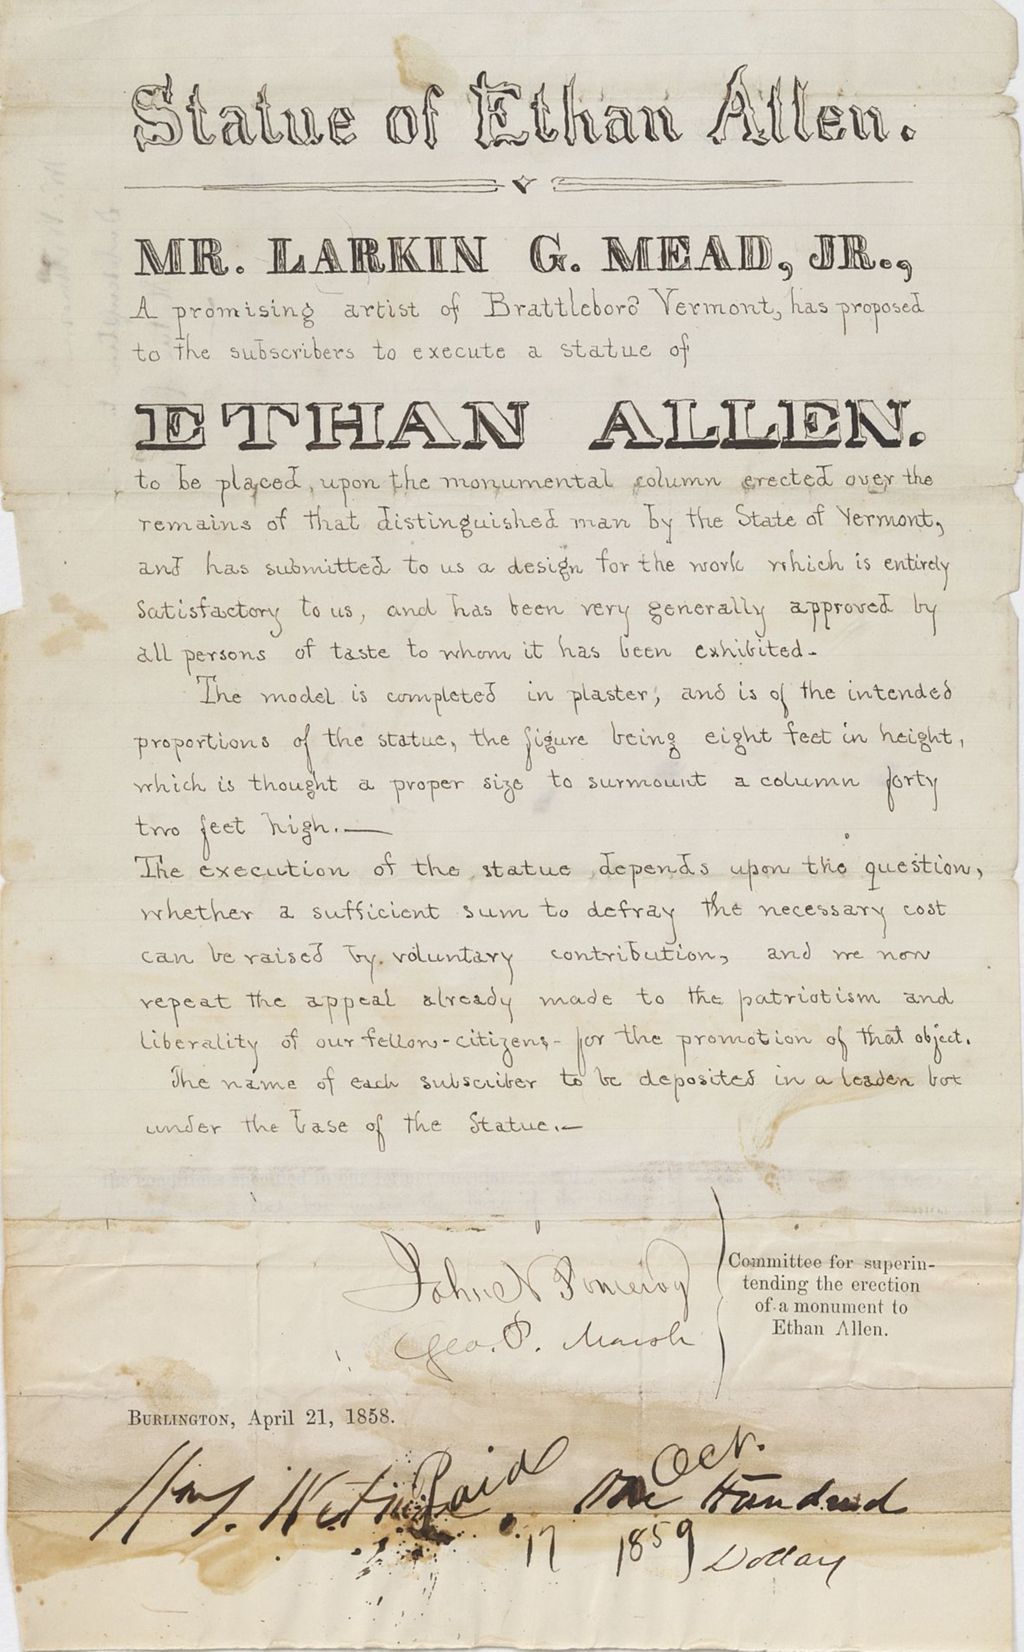 Statue of Ethan Allen.
MR. LARKIN G. MEAD, JR.,
A promising artist of Brattleboro Vermont, has proposed
to the subscribers to execute a statue of
ETHAN ALLEN.
to be placed, upon the monumental column erected over the
remains of that distinguished man by the State of Vermont,
and has submitted to us a design for the work which is entirely
satisfactory to us, and has been very generally approved by
all persons of taste to whom it has been exhibited-
The model is completed in plaster, and is of the intended
proportions of the statue, the figure being eight feet in height,
which is thought a proper size to surmount a column forty
two feet high.—
The execution of the statue depends upon the question,
whether a sufficient sum to defray the necessary cost
can be raised by voluntary contribution, and we now
repeat the appeal already made to the patriotism and
liberality of our fellow-citizens- for the promotion of that object.
The name of each subscriber to be deposited in a leaden box
under the base of the Statue.—
John N Pomeroy
Geo. P. Marsh
Committee for superin-
tending the erection
of a monument to
Ethan Allen.
BURLINGTON, April 21, 1858.
Paid Oct.
One Hundred
17 1859 Dollars